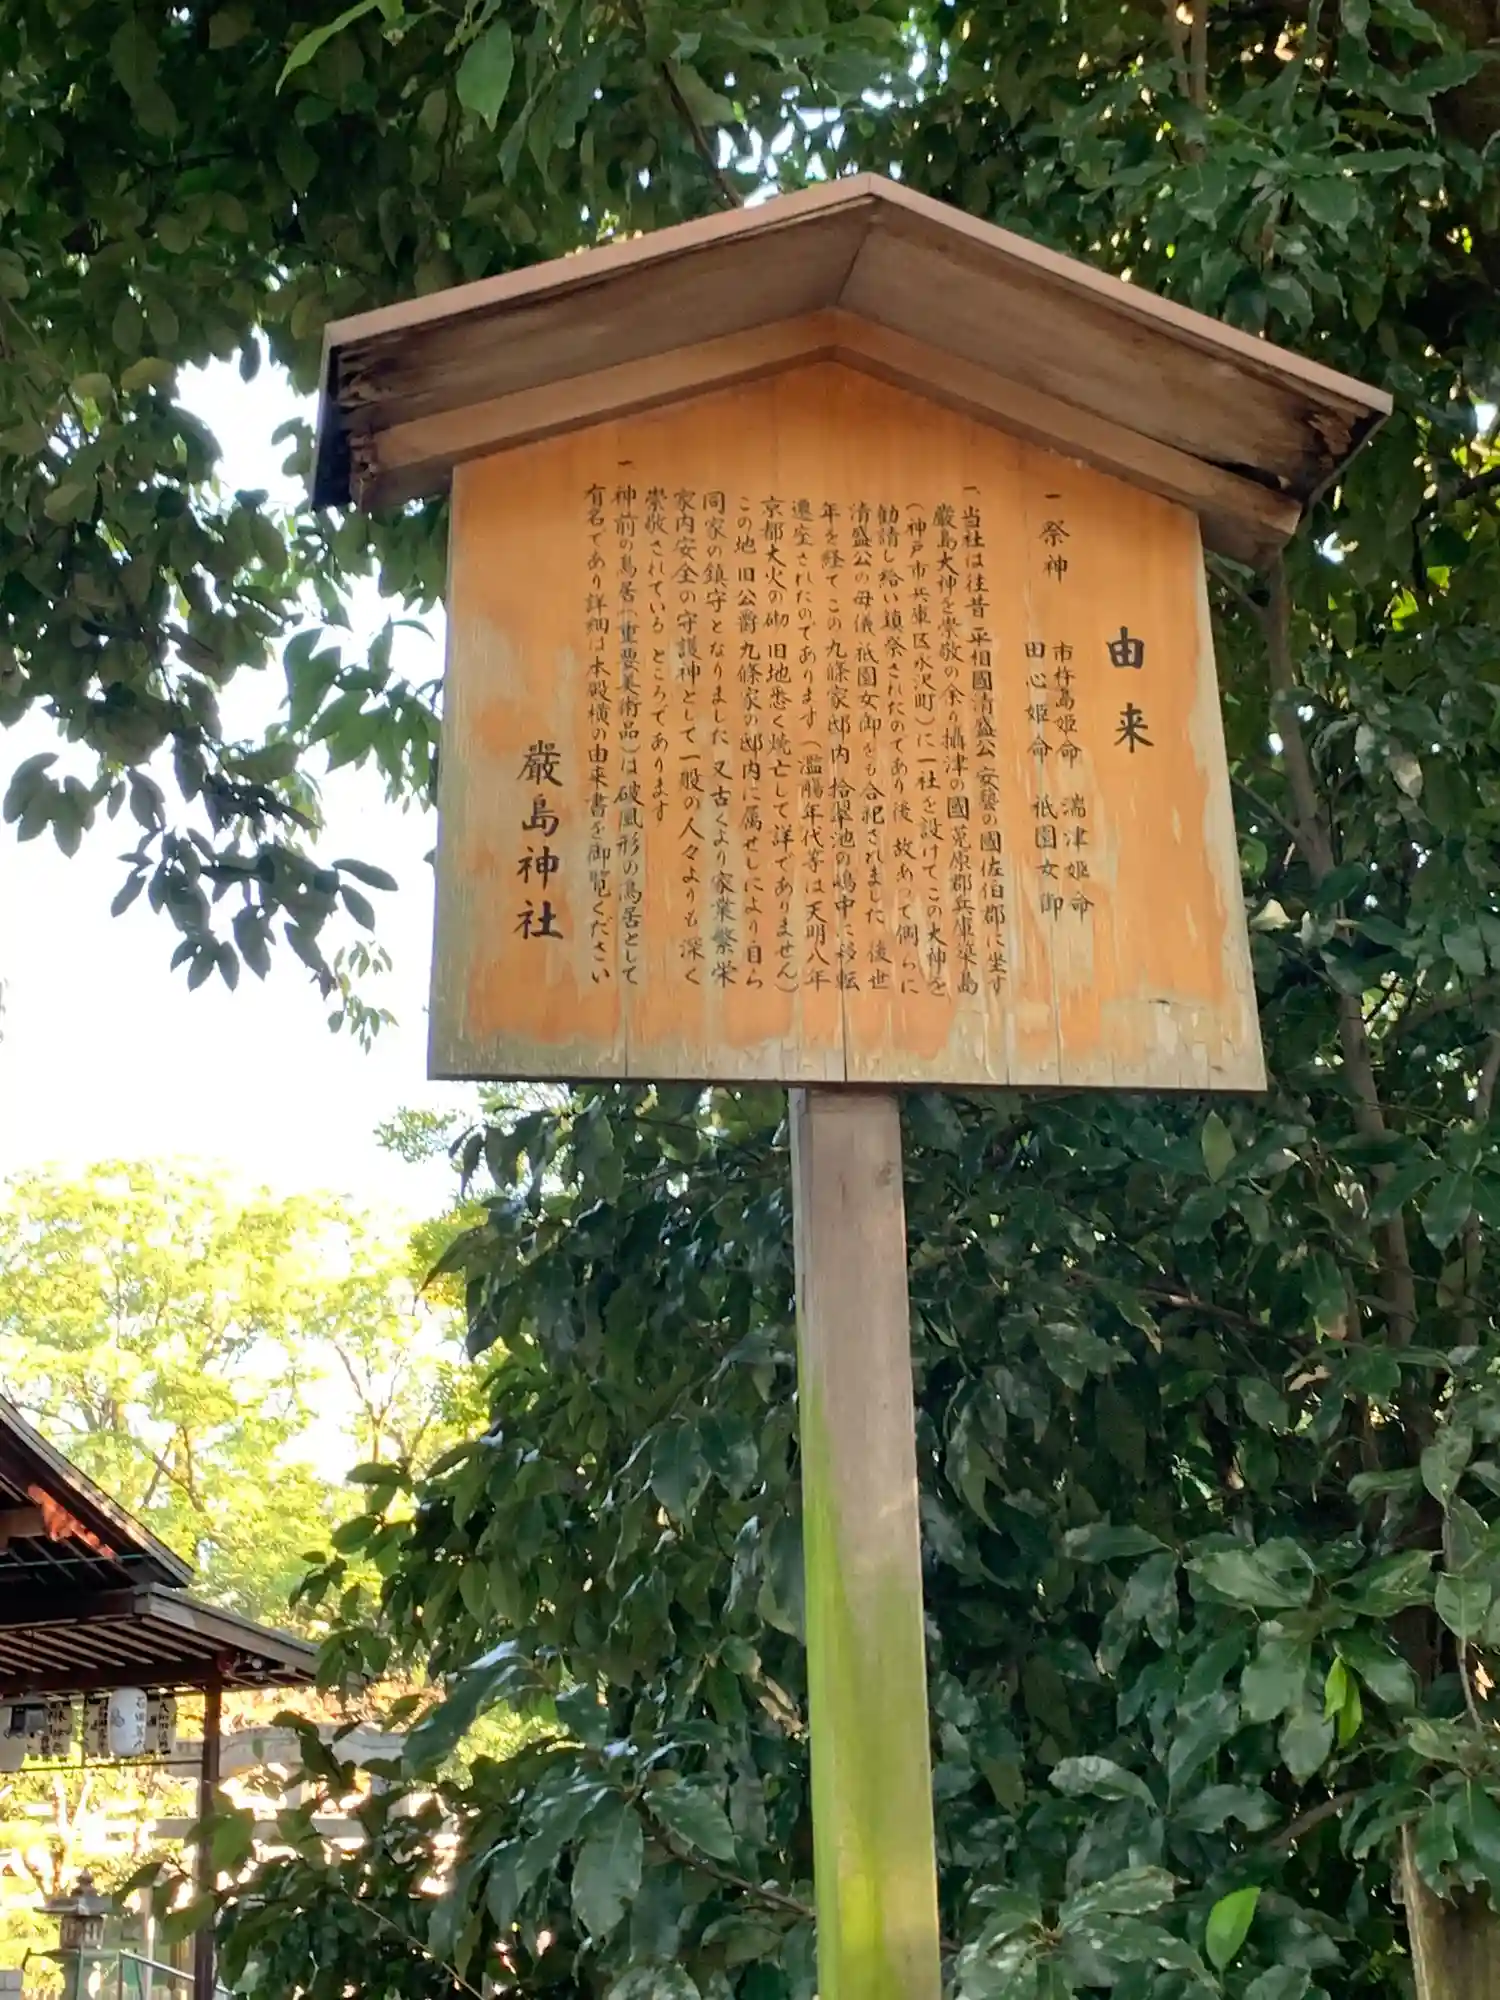 由来
一 祭神 市杵島姫命 湍津姫命
田心姫命 祇園女御
一、当社は往昔 平相國清盛公 安藝の國佐伯郡に坐す
厳島大神を崇敬の余り攝津の國菟原郡兵庫築島
(神戸市兵庫区永沢町)に一社を設けてこの大神を
勧請し給い鎮祭されたのであり後 故あって側らに
清盛公の母儀祇園女御をも合祀されました 後世
年を経てこの九條家邸内 拾翠池の嶋中に移転
遷座されたのであります(濫觴年代等は天明八年
京都大火の砌 旧地悉く焼亡して詳でありません)
この地 旧公爵九條家の邸内に属せしにより自ら
同家の鎮守となりました 又古くより家業繁栄
家内安全の守護神として一般の人々よりも深く
崇敬されている ところであります
一 神前の鳥居(重要美術品)は破風形の鳥居として
有名であり詳細は本殿横の由来書を御覧ください
嚴島神社